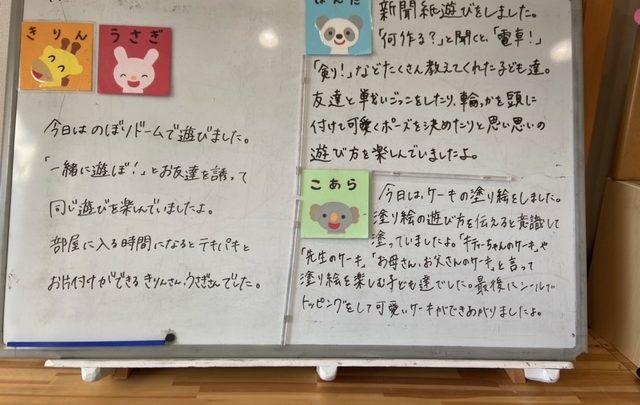 きりん
うさぎ
今日はのぼりドームで遊びました。
「一緒に遊ぼ！」とお友達を誘って
同じ遊びを楽しんでいましたよ。
部屋に入る時間になるとテキパキと
お片付けができるきりんさん、うさぎさんでした。
ぱんだ
新聞紙遊びをしました。
「何作る？」と聞くと、「電車！」
「剣り！」などたくさん教えてくれた子ども達。
友達と電車ごっこをしたり、輪っかを頭に
付けて可愛くポーズを決めたりと思い思いの
遊び方を楽しんでいましたよ。
こあら
今日は、ケーキの塗り絵をしました。
塗り絵の遊び方を伝えると意識して
塗っていましたよ。「キティーちゃんのケーキ」や
「先生のケーキ」「お母さん、お父さんのケーキ」と言って
塗り絵を楽しむ子ども達でした。最後にシールで
トッピングをして可愛いケーキができあがりましたよ。